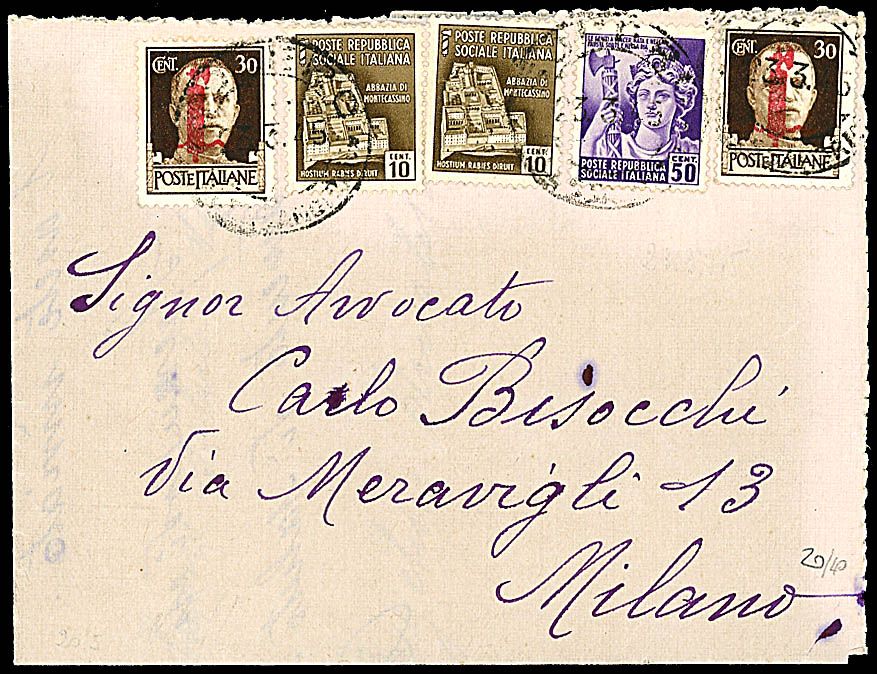 CENT. 30
POSTE ITALIANE
POSTE REPUBBLICA
SOCIALE ITALIANA
ABBAZIA DI
MONTECASSINO
CENT.
10
HOSTIUM RABIES DIRUIT
POSTE REPUBBLICA
SOCIALE ITALIANA
ABBAZIA DI
MONTECASSINO
CENT.
10
HOSTIUM RABIES DIRUIT
POSTE REPUBBLICA
SOCIALE ITALIANA
CENT.
50
CENT. 30
POSTE ITALIANE
Signor Avvocato
Carlo Bisocchi
Via Meravigli 13
Milano
20/40